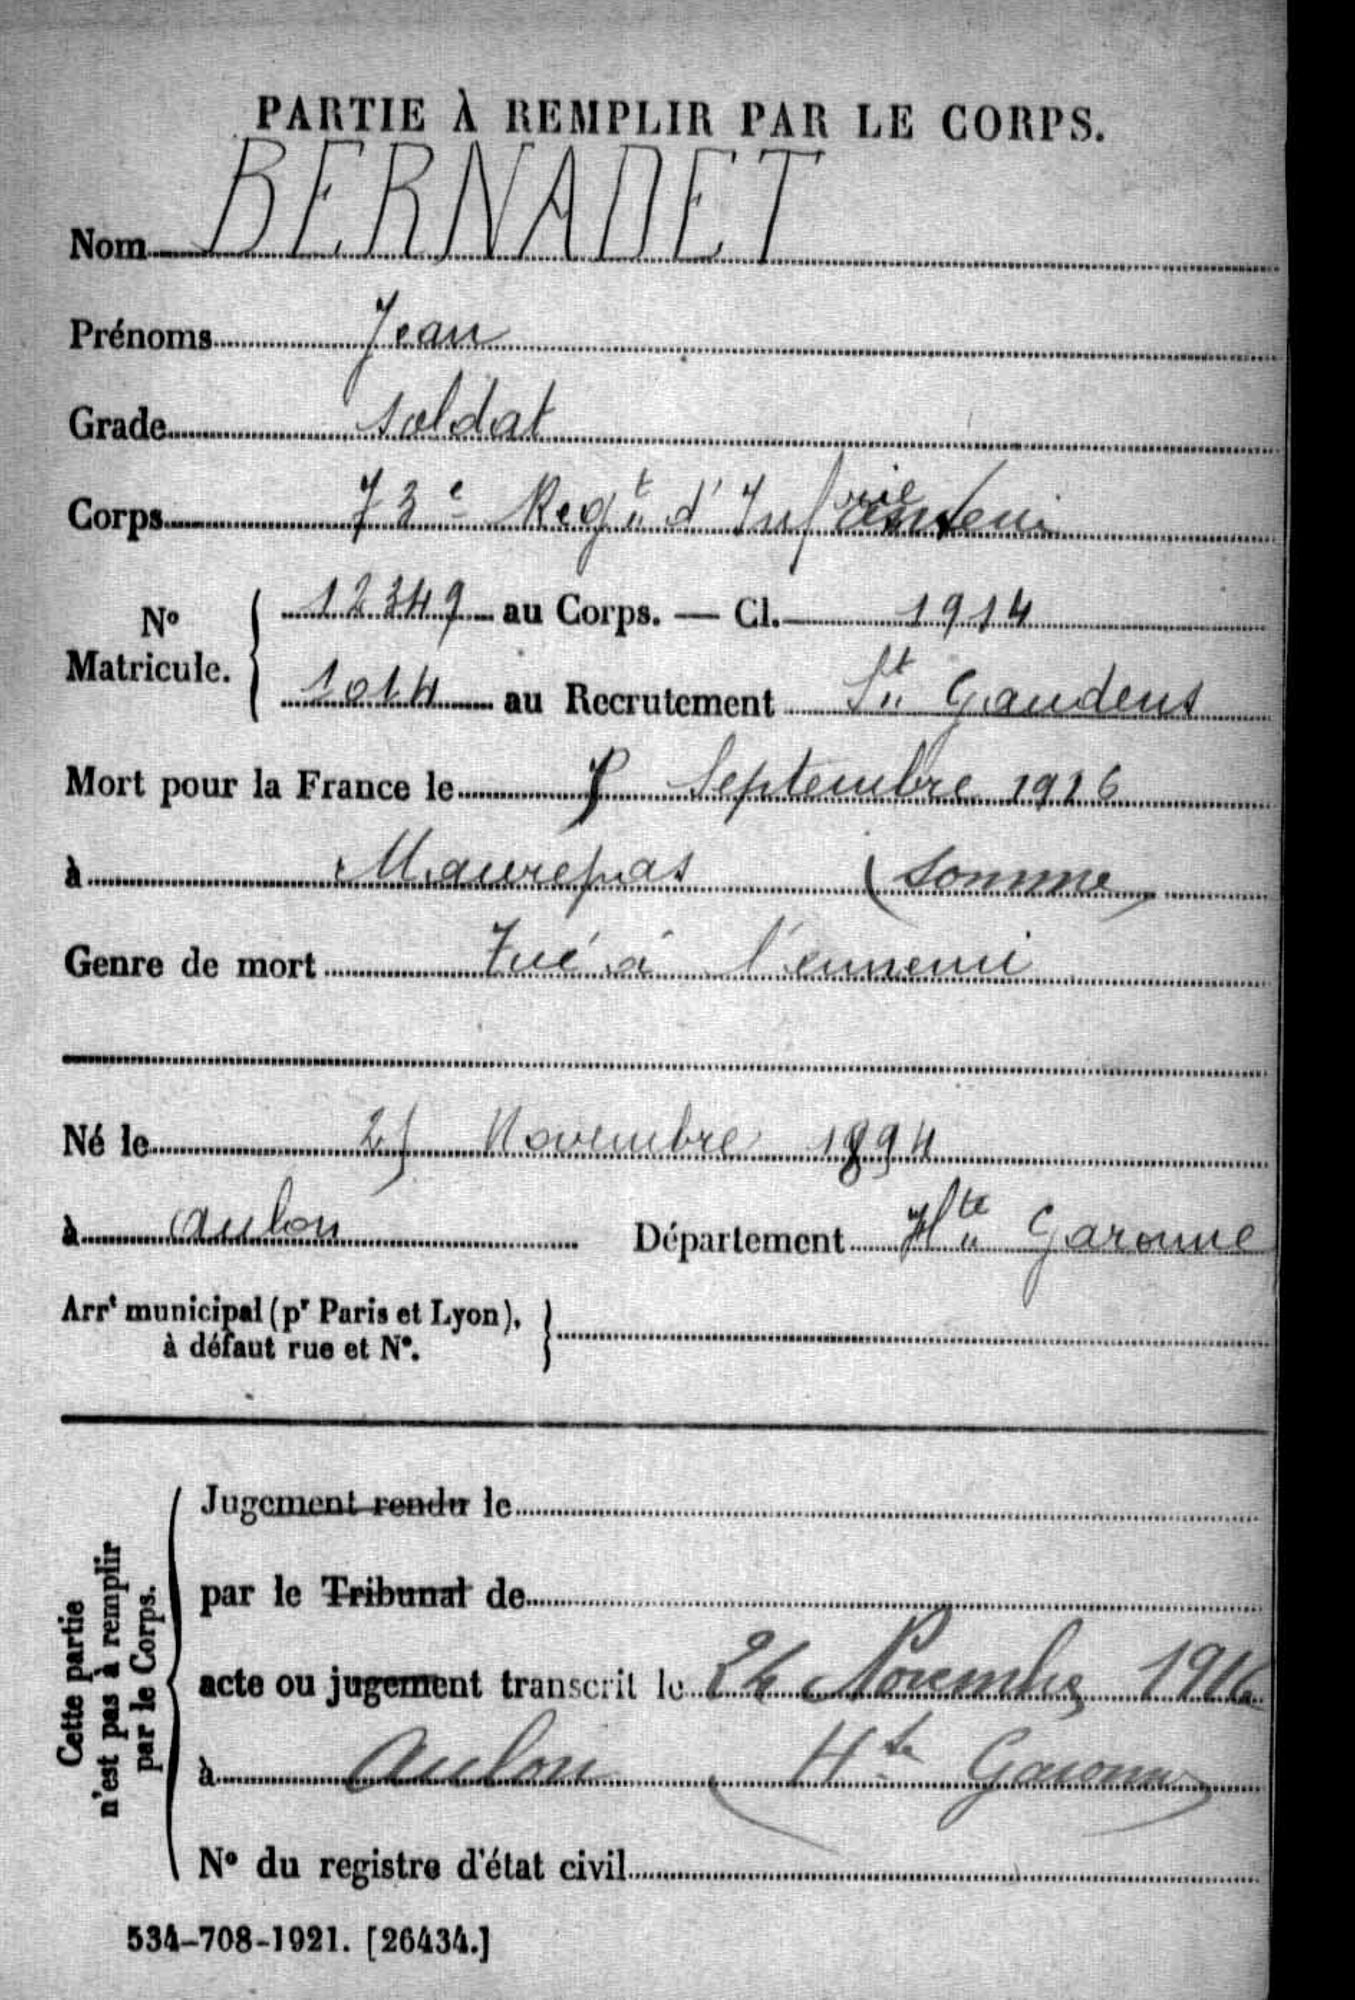 PARTIE À REMPLIR PAR LE CORPS.
Nom BERNADET
Prénoms Jean
Grade soldat
Corps 73e Regt d'Infrie
N° Matricule. 12349 au Corps. — Cl. 1914
1014 au Recrutement St Gaudens
Mort pour la France le Septembre 1916
à Maurepas (Somme)
Genre de mort Tué à l'ennemi
Né le 25 Novembre 1894
à Aulon Département Hte Garonne
Arrt municipal (pr Paris et Lyon),
à défaut rue et N°.
Cette partie
n'est pas à remplir
par le Corps.
Jugement rendu le
par le Tribunal de
acte ou jugement transcrit le 24 Novembre 1916
à Aulon (Hte Garonne)
N° du registre d'état civil
534-708-1921. [26434.]